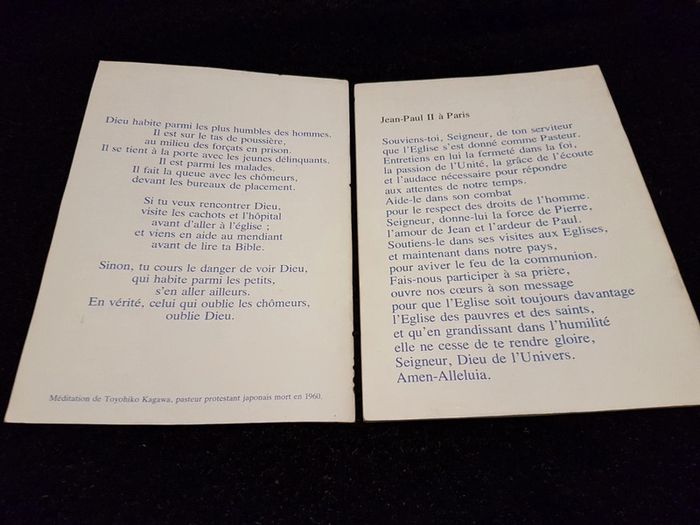 Dieu habite parmi les plus humbles des hommes.
Il est sur le tas de poussière,
au milieu des forçats en prison.
Il se tient à la porte avec les jeunes délinquants.
Il est parmi les malades.
Il fait la queue avec les chômeurs,
devant les bureaux de placement.
Si tu veux rencontrer Dieu,
visite les cachots et l'hôpital
avant d'aller à l'église ;
et viens en aide au mendiant
avant de lire ta Bible.
Sinon, tu cours le danger de voir Dieu,
qui habite parmi les petits,
s'en aller ailleurs.
En vérité, celui qui oublie les chômeurs,
oublie Dieu.
Méditation de Toyohiko Kagawa, pasteur protestant japonais mort en 1960.
Jean-Paul II à Paris
Souviens-toi, Seigneur, de ton serviteur
que l'Eglise s'est donné comme Pasteur.
Entretiens en lui la fermeté dans la foi,
la passion de l'Unité, la grâce de l'écoute
et l'audace nécessaire pour répondre
aux attentes de notre temps.
Aide-le dans son combat
pour le respect des droits de l'homme.
Seigneur, donne-lui la force de Pierre,
l'amour de Jean et l'ardeur de Paul.
Soutiens-le dans ses visites aux Eglises,
et maintenant dans notre pays,
pour aviver le feu de la communion.
Fais-nous participer à sa prière,
ouvre nos cœurs à son message
pour que l'Eglise soit toujours davantage
l'Eglise des pauvres et des saints,
et qu'en grandissant dans l'humilité
elle ne cesse de te rendre gloire,
Seigneur, Dieu de l'Univers.
Amen-Alleluia.